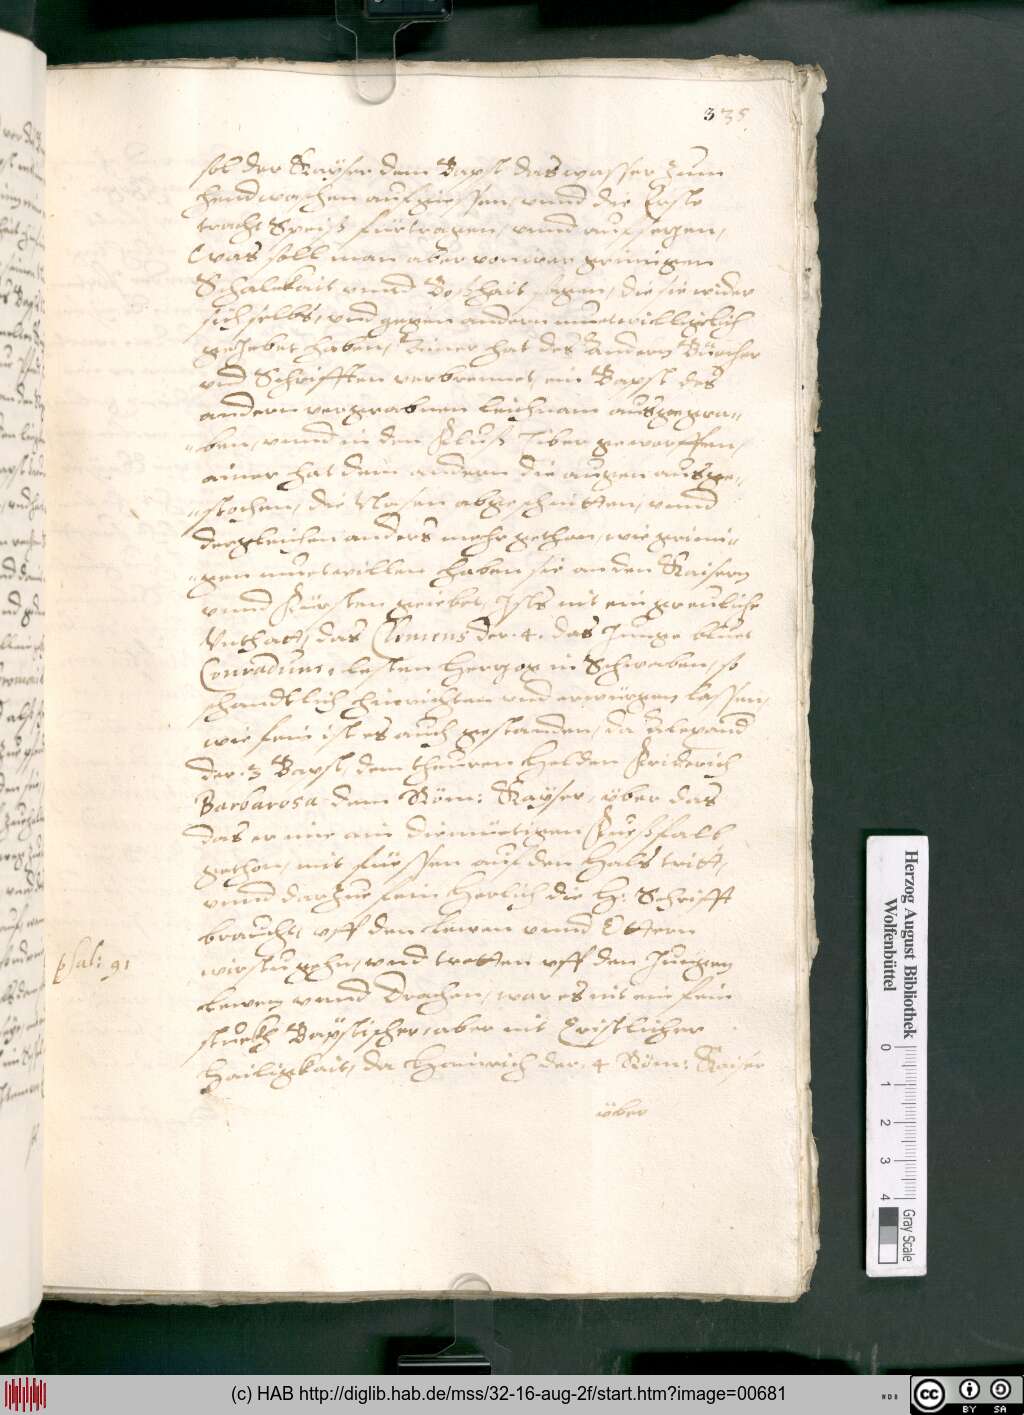 335
soll der Kayser dem Bapst das wasser zum
hendwaschen aufgiessen, vnnd die Erste
tracht Speiß fürtragen, vnnd auffsezen,
Was soll man aber von irer grimigen
Schalckait vnnd Boßhait sagen, die sie wider
sich selbs, vnd gegen andern muetwilligelich
geiebet haben, Einer hat des Andern Bücher
vnd Schrifften verbrennet, ein Bapst des
andern vergrabnen leichnam ausgegra-
ben, vnnd in den Fluß Tiber geworffen,
ainer hat dem andern die augen ausge-
stochen, die Nasen abgeschnitten, vnnd
dergleichen anders mehr gethan, wie grimi-
gen muetwillen haben sie an den Kaisern
vnnd Fürsten geiebet, Ists nit ein greuliche
Vnthatt, das Clemens der .4. das Junge bluet
Conradum, lesten Herzog in Schwaben, so
schandtlich hinrichten vnd erwürgen lassen,
wie fein ist es auch gestanden, da Alexand
der .3 Bapst, dem theuren Helden Friderich
Barbarosa dem Röm: Kayser, über das
das er ime ain diemüetigen Fuesfall
gethon, mit füessen auf den Hals tritt,
vnnd darzue fein herlich die H: Schrifft
braucht, vff den Lewen vnnd Ottern
wirstu gehn, vnd tretten vff den Jungen
Lewen vnnd Drachen, war es nit ein fein
stuckh Bäpstischer, aber nit Cristlicher
Hailigkait, da Hainrich der .4 Röm: Kaiser
über
psal: 91
Herzog August Bibliothek
Wolfenbüttel
0 1 2 3 4
Gray Scale
(c) HAB http://diglib.hab.de/mss/32-16-aug-2f/start.htm?image=00681
WDB
cc BY SA